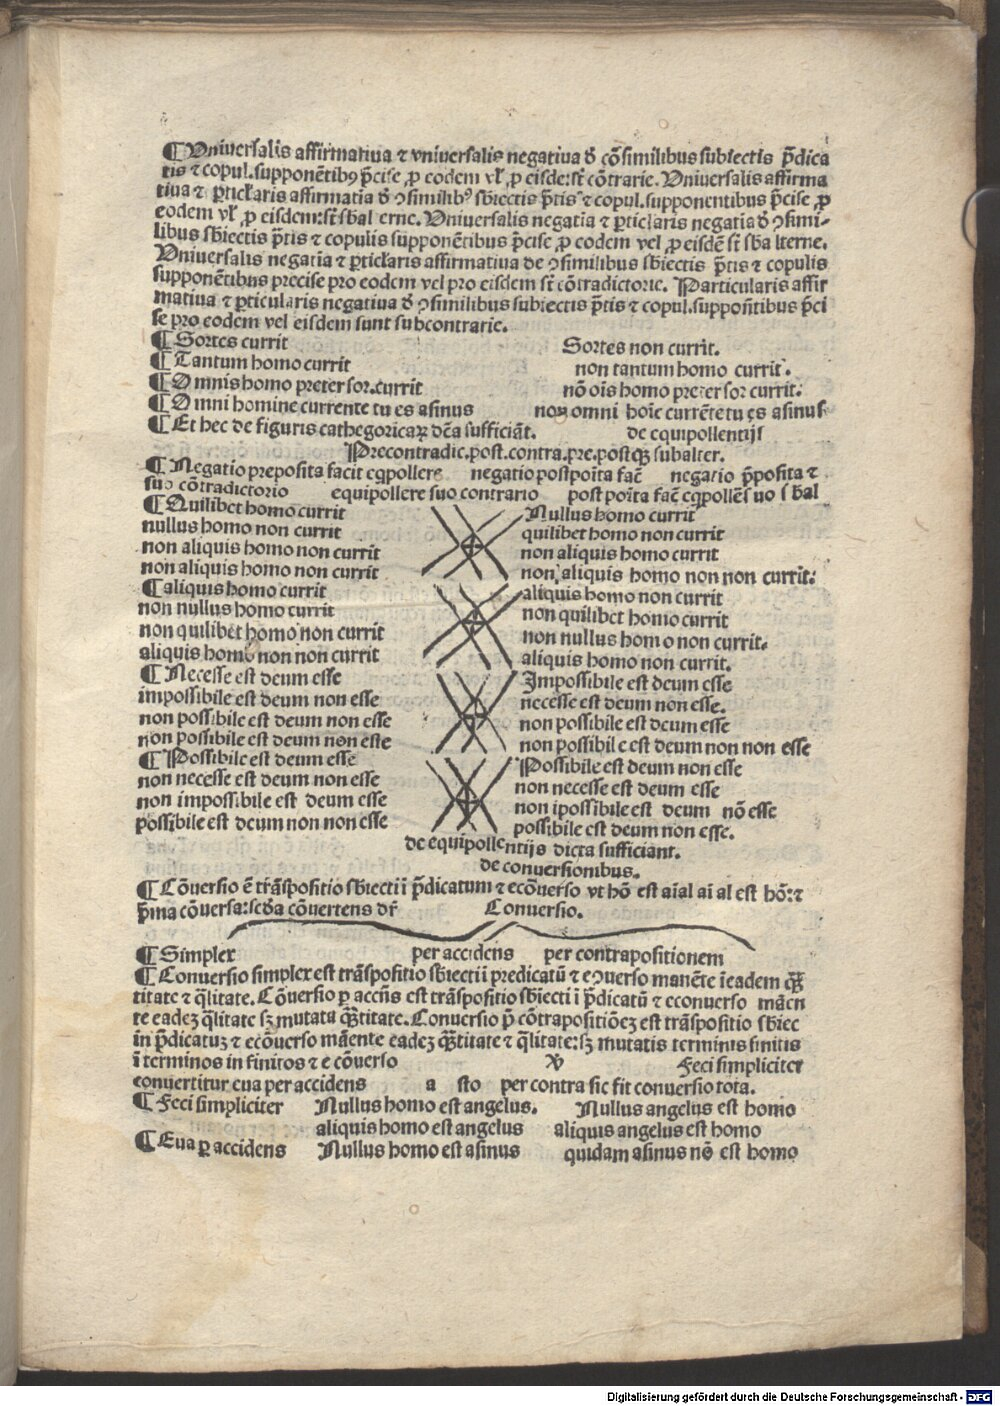 ¶ Vniuersalis affirmatiua ⁊ vniuersalis negatiua d̄ cōsimilibus subiectis p̄dica
tis ⁊ copul.supponētibꝰ p̄cise ꝓ eodem vl̓ ꝓ eisdē:st̄ cōtrarie. Vniuersalis affirma
tiua ⁊ ꝑticl̓aris affirmatia d̄ ↄsimilibꝰ sb̄iectis p̄tis ⁊ copul.supponentibus p̄cise ꝓ
eodem vl̓ ꝓ eisdem:st̄ sb̄al erne. Vniuersalis negatia ⁊ ꝑticl̓aris negatia d̄ ↄsimi-
libus sb̄iectis p̄tis ⁊ copulis supponētibus p̄cise ꝓ eodem vel ꝓ eisdē st̄ sb̄a lterne.
Vniuersalis negatia ⁊ ꝑticl̓aris affirmatiua de ↄsimilibus sb̄iectis p̄tis ⁊ copulis
supponētibus precise pro eodem vel pro eisdem st̄ cōtradictorie. Particularis affir
matiua ⁊ ꝑticularis negatiua d̄ ↄsimilibus subiectis p̄tis ⁊ copul.suppon̄tibus p̄ci
se pro eodem vel eisdem sunt subcontrarie.
¶ Sortes currit Sortes non currit.
¶ Tantum homo currit non tantum homo currit.
¶ Omnis homo preter sor.currit nō oīs homo preter sor currit.
¶ Omni homine currente tu es asinus non omni hoīe currēte tu es asinus
¶ Et hec de figuris cathegoricaꝝ dc̄a sufficiāt. de equipollentijs
Precontradic.post.contra.pre.postqꝫ subalter.
¶ Negatio preposita facit eqpollere negatio postpoīta facē negatio p̄posita ⁊
suo cōtradictorio equipollere suo contrario post poīta facē eqpollēs uo s b̄al
¶ Quilibet homo currit Nullus homo currit
nullus homo non currit quilibet homo non currit
non aliquis homo non currit non aliquis homo currit
non aliquis homo non currit non aliquis homo non non currit:
¶ aliquis homo currit aliquis homo non currit
non nullus homo currit non quilibet homo currit
non quilibet homo non currit non nullus homo non currit.
aliquis homo non non currit aliquis homo non currit.
¶ Necesse est deum esse Impossibile est deum esse
impossibile est deum non esse necesse est deum non esse.
non possibile est deum non esse non possibile est deum esse
non possibile est deum non este non possibile est deum non non esse
¶ Possibile est deum esse Possibile est deum non esse
non necesse est deum non esse non necesse est deum esse
non impossibile est deum esse non ipossibile est deum nō esse
possibile est deum non non esse possibile est deum non esse.
de equipollentijs dicta sufficiant.
de conuersionibus.
¶ Cōuersio ē trāspositio sb̄iecti i p̄dicatum ⁊ ecōuerso vt hō est aīal aī al est hō:⁊
p̄ma cōuersa:scd̄a cōuertens dr̄ Conuersio.
¶ Simplex per accidens per contrapositionem
¶ Conuersio simplex est trāspositio sb̄iecti i predicatū ⁊ eↄuerso manēte ī eadem qꝫ̄
titate ⁊ q̄litate. Cōuersio ꝑ accn̄s est trāspositio sb̄iecti i p̄dicatū ⁊ econuerso mānē
te eadeꝫ q̄litate sꝫ mutata qꝫ̄titate. Conuersio p̄ cōtrapositiōeꝫ est trāspositio sb̄iec
in p̄dicatuꝫ ⁊ ecōuerso mānente eadeꝫ qꝫ̄titate ⁊ q̄litate:sꝫ mutatis terminis finitis
ī terminos in finitos ⁊ e cōuerso Feci simpliciter
conuertitur eua per accidens a sto per contra sic fit conuersio tota.
¶ Feci simpliciter Nullus homo est angelus. Nullus angelus est homo
aliquis homo est angelus aliquis angelus est homo
¶ Eua ꝑ accidens Nullus homo est asinus quidam asinus nō est homo
Digitalisierung gefördert durch die Deutsche Forschungsgemeinschaft - DFG